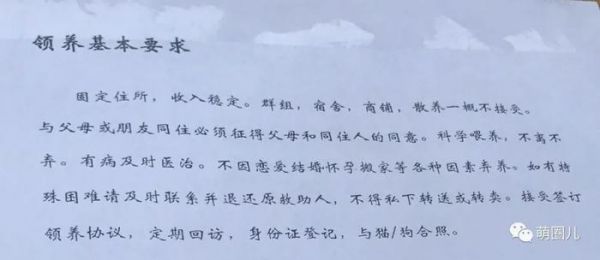 领养基本要求
固定住所，收入稳定。群组，宿舍，商铺，散养一概不接受。
与父母或朋友同住必须征得父母和同住人的同意。科学喂养，不离不
弃。有病及时医治。不因恋爱结婚怀孕搬家等各种因素弃养。如有特
殊困难请及时联系并退还原救助人，不得私下转送或转卖。接受签订
领养协议，定期回访，身份证登记，与猫/狗合照。
萌圈儿